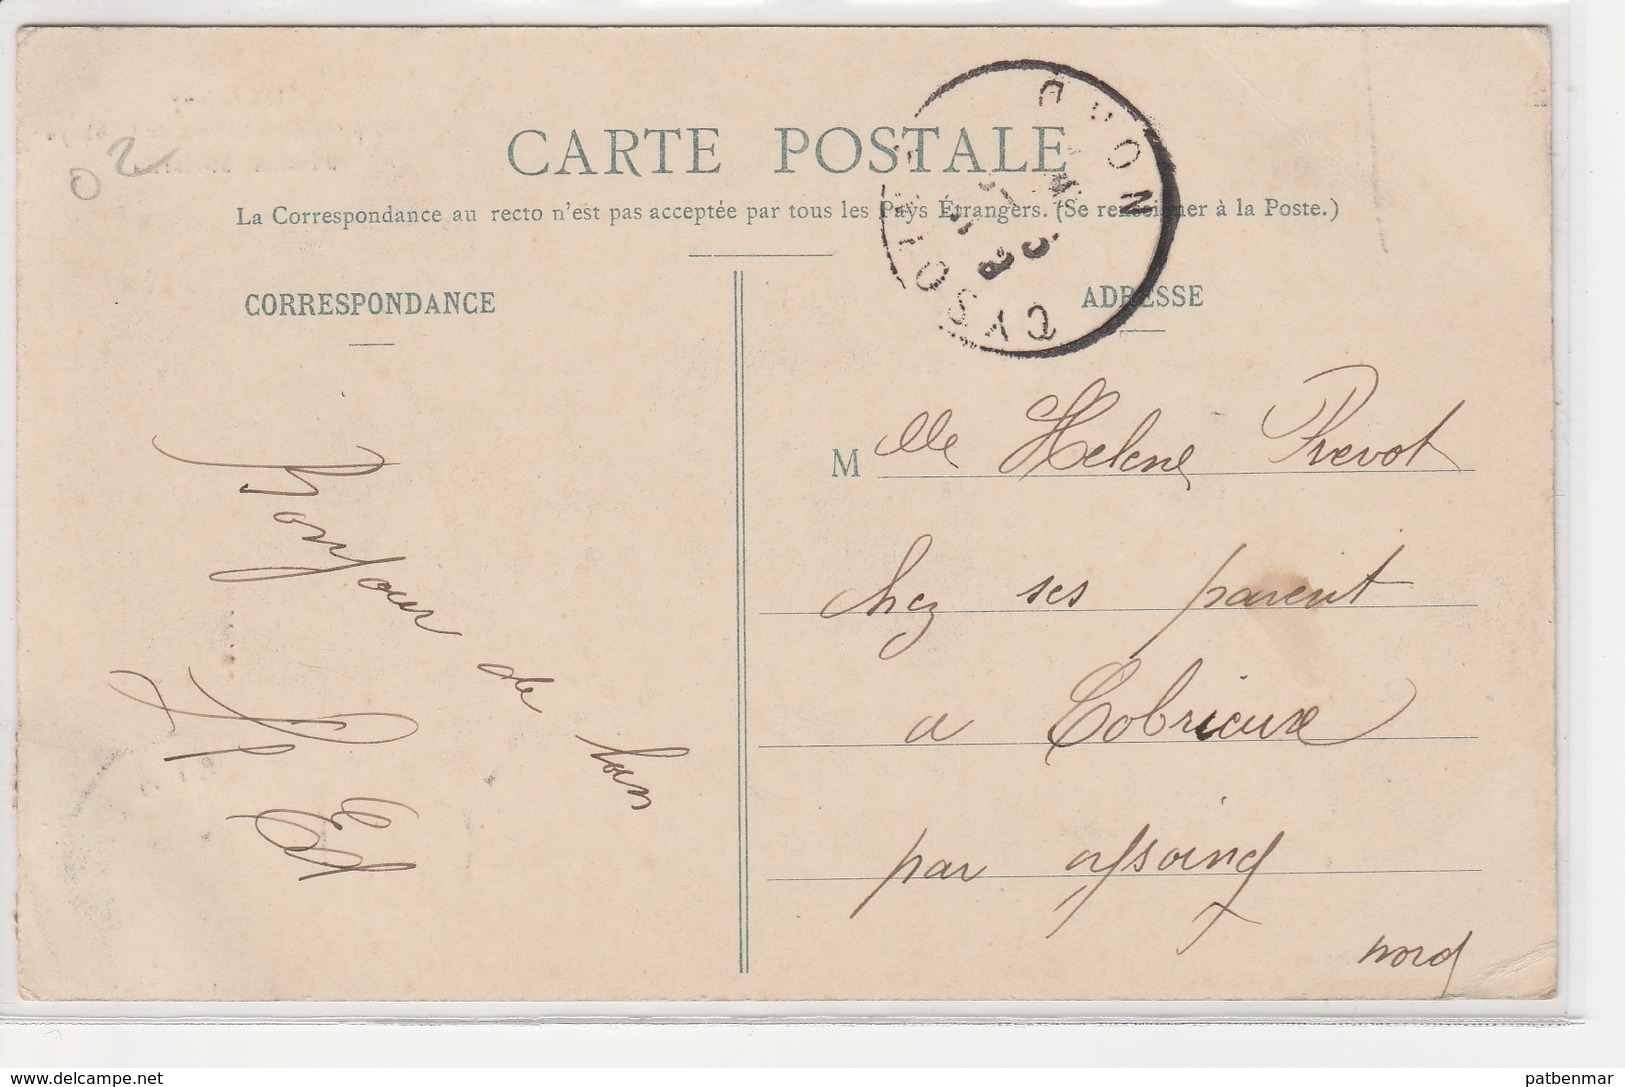 02
CARTE POSTALE
La Correspondance au recto n'est pas acceptée par tous les Pays Étrangers. (Se renseigner à la Poste.)
CORRESPONDANCE
Bonjour de
ADRESSE
Mlle Helene Prevot
chez ses parent
a Cobrieux
par
nord
www.delcampe.net
patbenmar